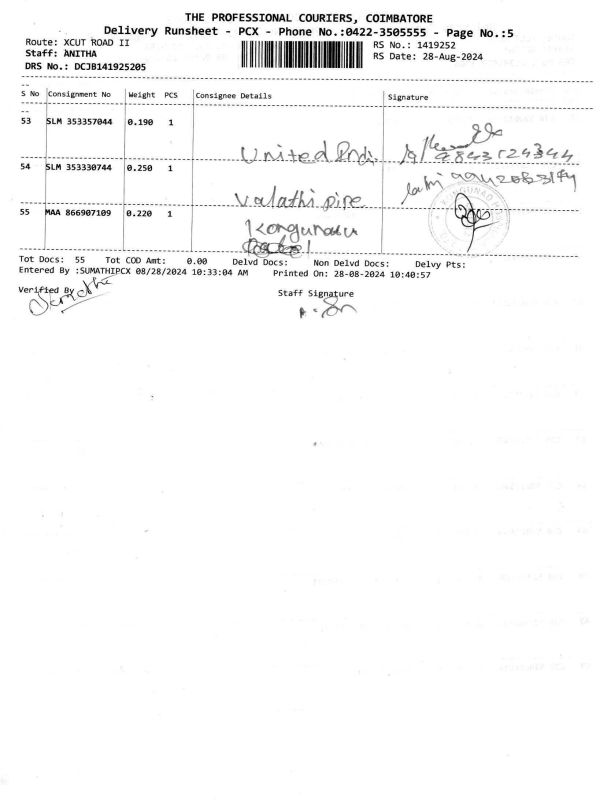 THE PROFESSIONAL COURIERS, COIMBATORE
Delivery Runsheet - PCX - Phone No.:0422-3505555 - Page No.:5
Route: XCUT ROAD II
RS No.: 1419252
Staff: ANITHA
RS Date: 28-Aug-2024
DRS No.: DCJB141925205
S No Consignment No Weight PCS Consignee Details Signature
53 SLM 353357044 0.190 1
United Indi
9843124344
54 SLM 353330744 0.250 1
Valathi pipe
55 MAA 866907109 0.220 1
Kongunadu
Tot Docs: 55 Tot COD Amt: 0.00 Delvd Docs: Non Delvd Docs: Delvy Pts:
Entered By :SUMATHIPCX 08/28/2024 10:33:04 AM Printed On: 28-08-2024 10:40:57
Verified By
Staff Signature